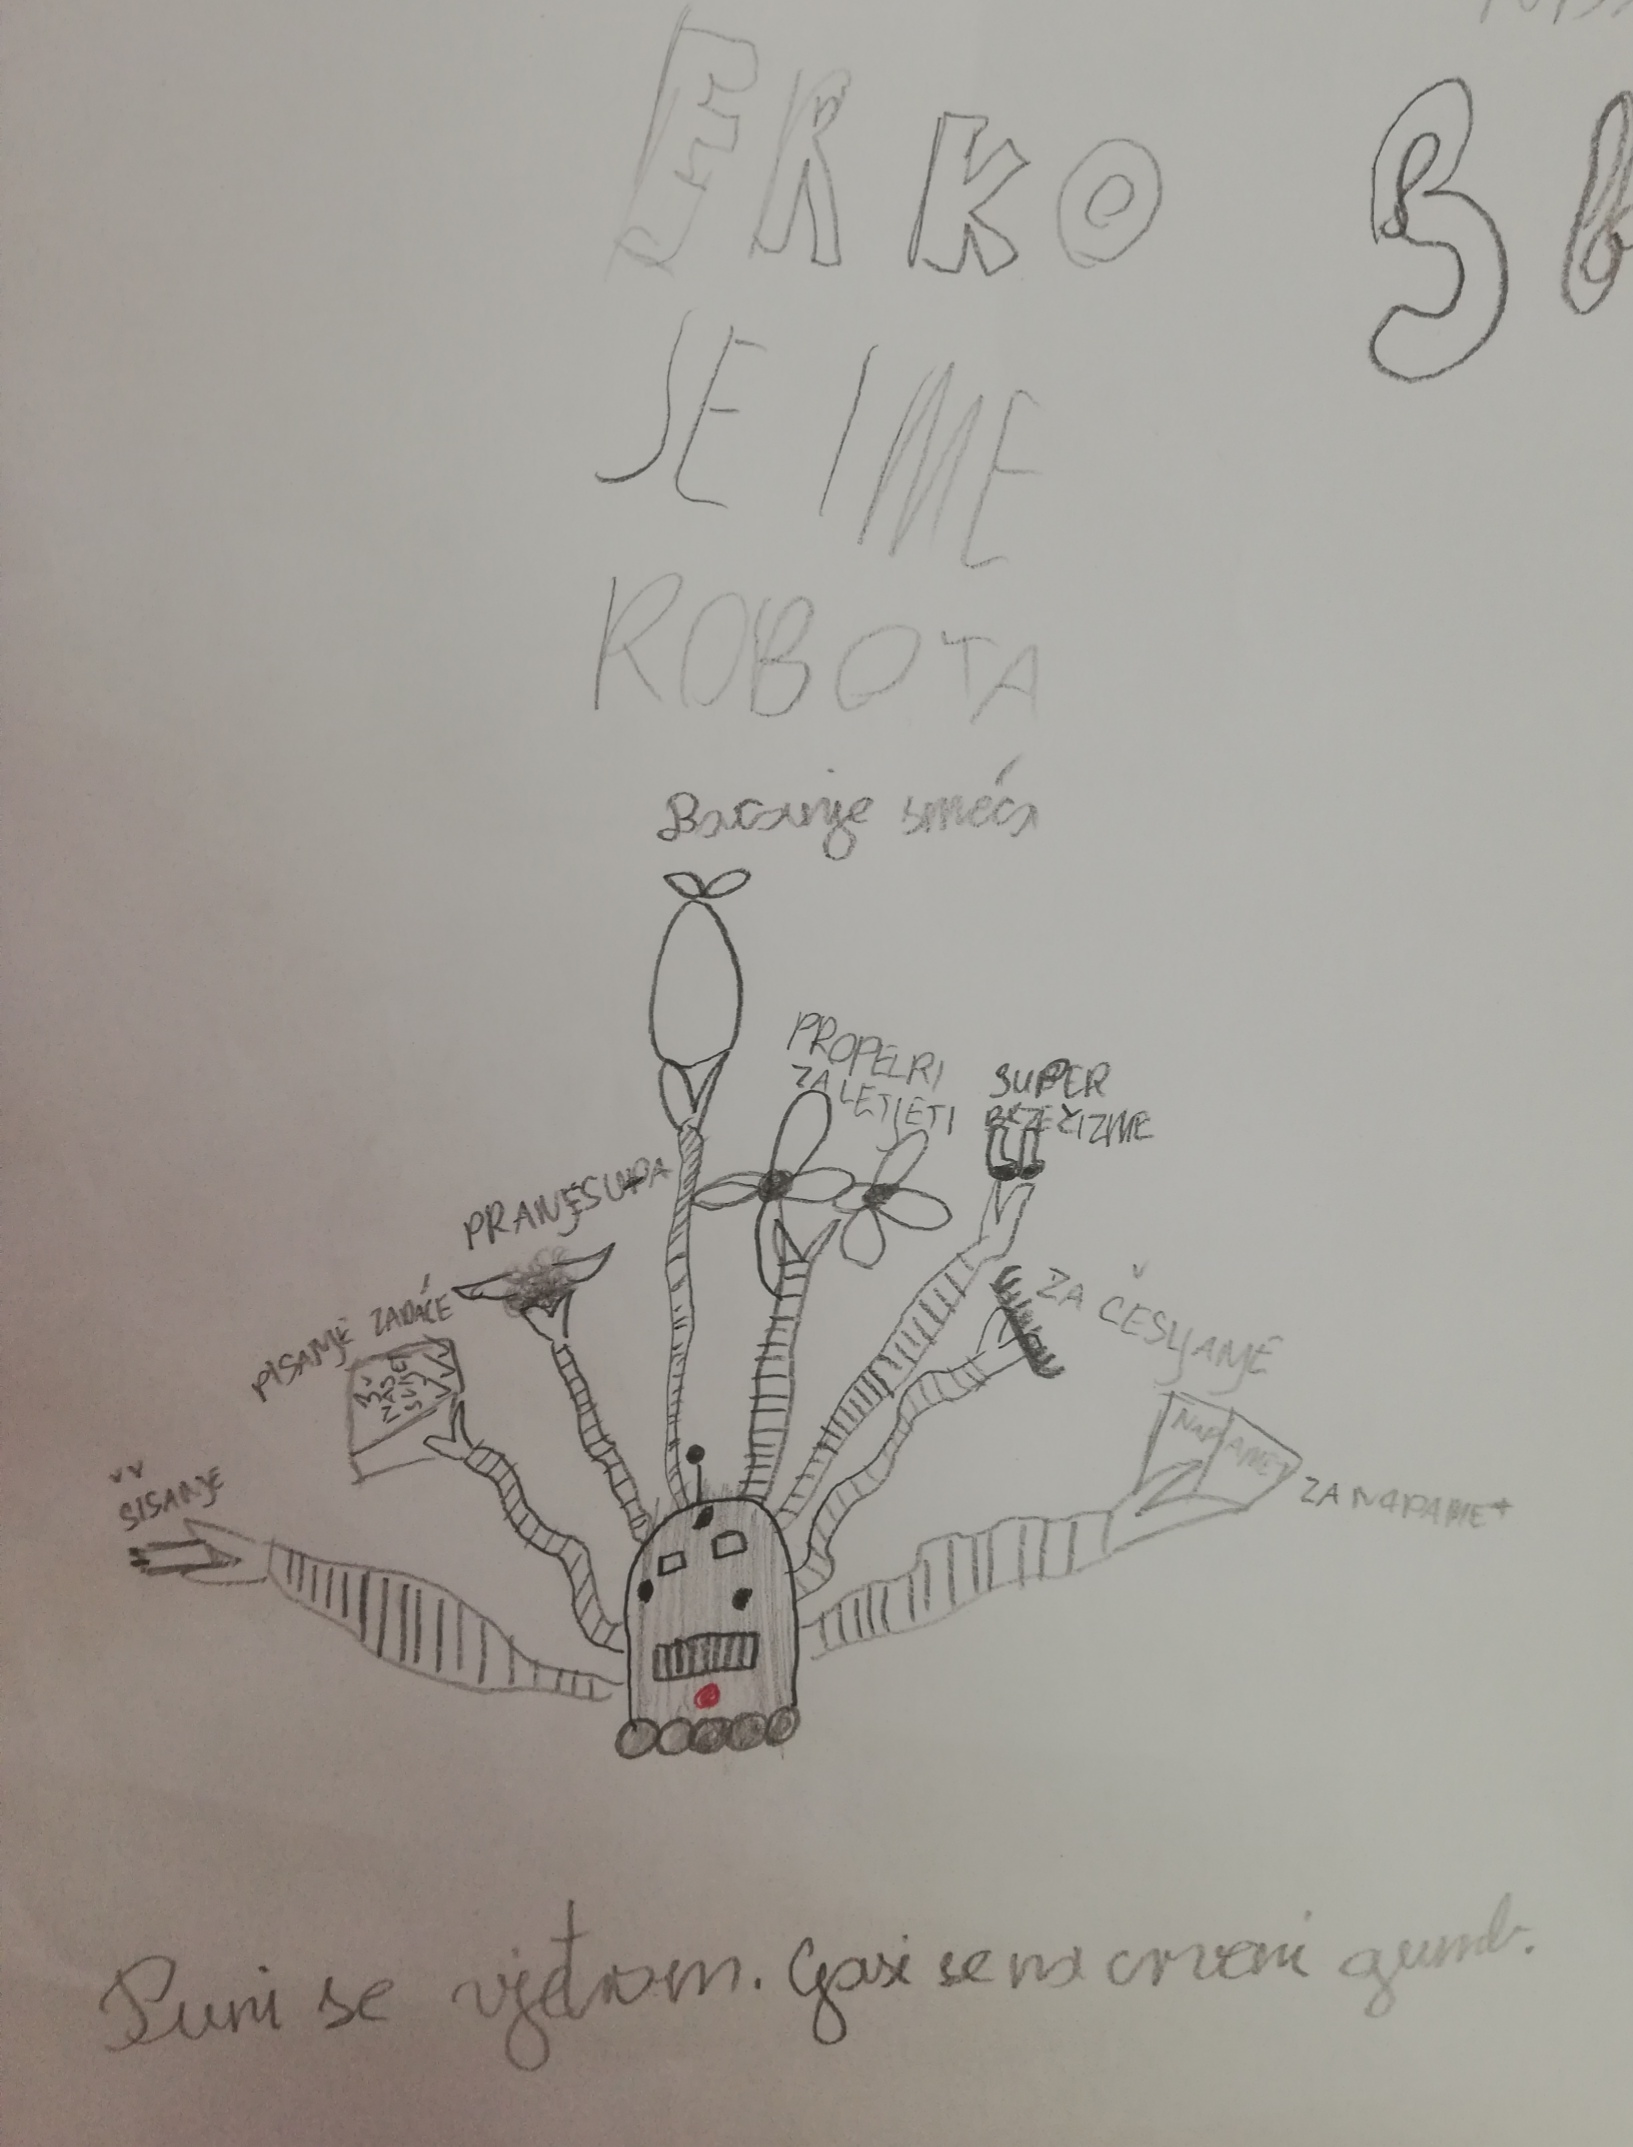 ERKO
3 b
JE IME
ROBOTA
Bacanje smeća
PROPELRI
ZA LETJETI
SUPER
BRZE ČIZME
PRANJE SUĐA
PISANJE ZADAĆE
ZA ČEŠLJANJE
NAPAMET
ZA NAPAMET
ŠIŠANJE
Puni se vjetrom. Gasi se na crveni gumb.